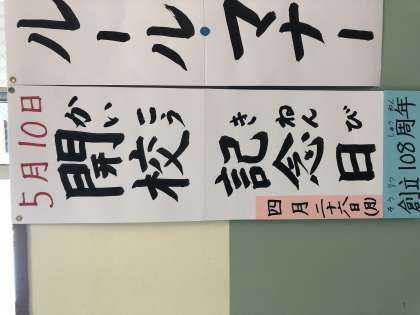 ルールマナー
5月10日
かいこうきねんび
開校記念日
四月二十六日(月)
そうりつ しゅうねん
創立108周年